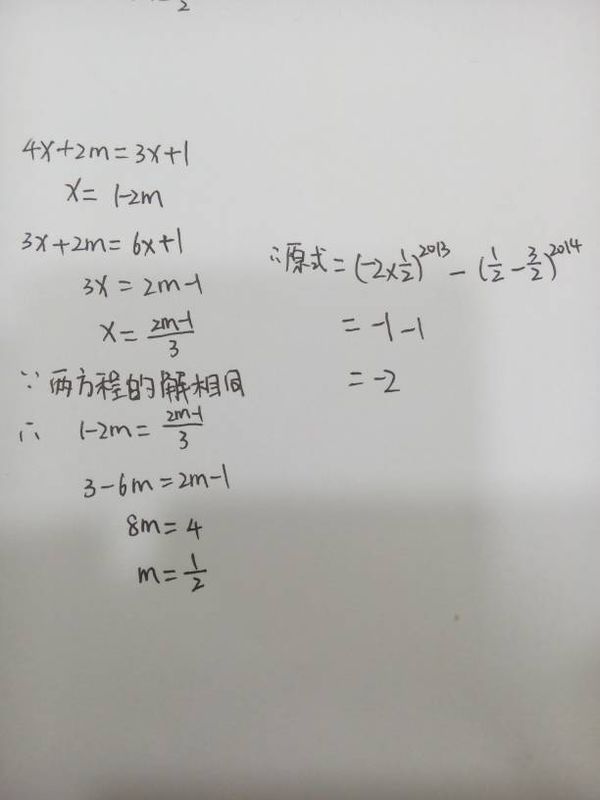 2
4x+2m=3x+1
x=1-2m
3x+2m=6x+1
3x=2m-1
x=\frac{2m-1}{3}
∵两方程的解相同
∴ 1-2m=\frac{2m-1}{3}
3-6m=2m-1
8m=4
m=\frac{1}{2}
∴原式=(-2×\frac{1}{2})^{2013}-(\frac{1}{2}-\frac{3}{2})^{2014}
=-1-1
=-2